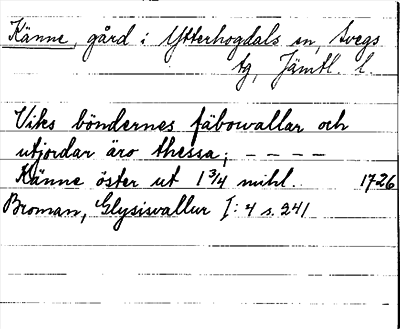 Känne, gård i Ytterhogdals sn, Svegs
tg, Jämtl. l.
Viks böndernes fäbowallar och
utjordar äro thessa; – – – –
Känne öster ut 1 3/4 mihl. 1726
Broman, Glysisvallur I: 4 s. 241